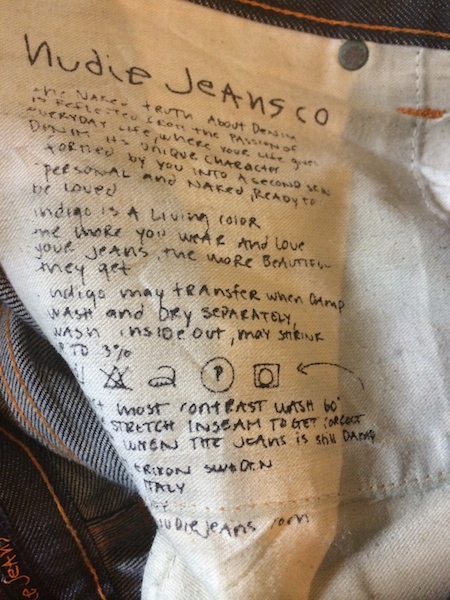 nudie Jeans co
the NAKED tRUtH About DENIM
is REFLECTED FROM the PASSION OF
EVERYDAY Life, where YOUR Life gives
DENIM its UNIQUE CHARACTER
FORMED by you INTO A SECOND SKIN
PERSONAL and NAKED, READY to
be Loved
indigo is A Living color
the more you WEAR And Love
your JEANS, the more BEAUTIFUL
they get
indigo may tRANsfer when DAMP
WASH and DRY SEPARATELY,
WASH INSIDE OUT, may SHRINK
UP TO 3%
P
MOST CONTRAST WASH 60°
STRETCH INSEAM TO GET CORRECT
WHEN THE JEANS is still DAMP
SWEDEN
ITALY
nudiejeans.com
JEANS